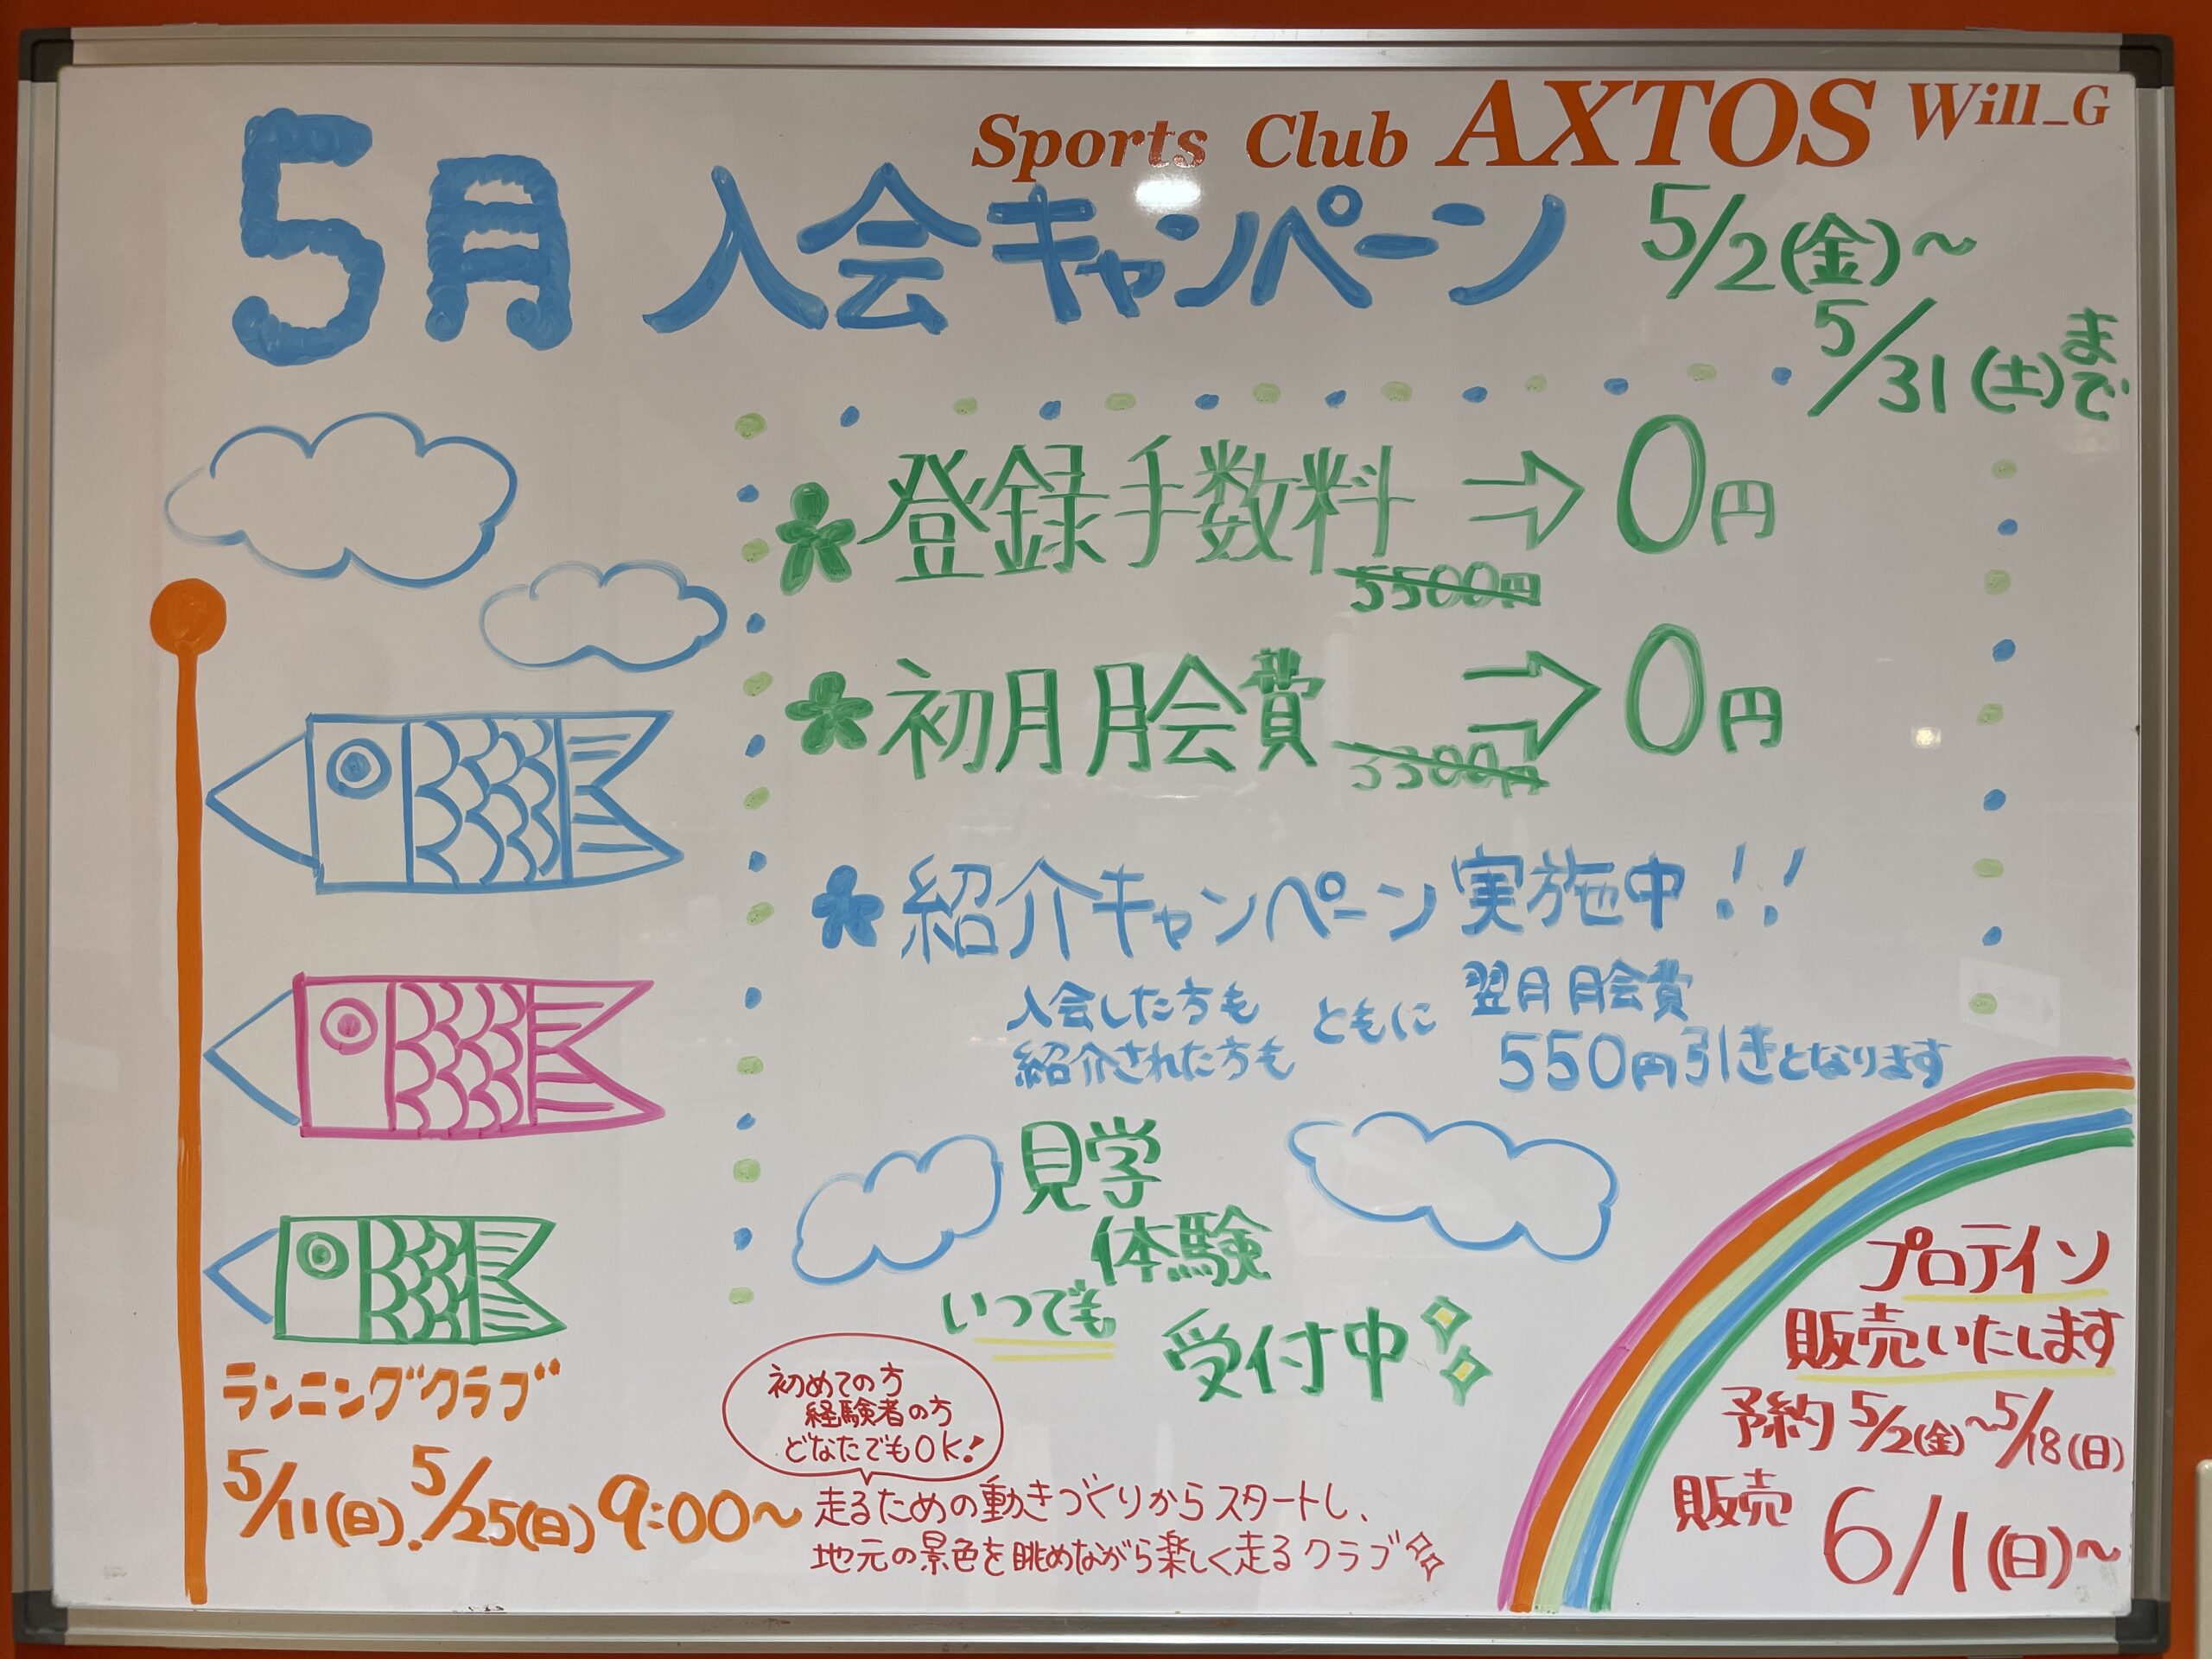 Sports Club AXTOS Will_G
5月 入会キャンペーン 5/2(金)~
5/31(土)まで
登録手数料 ⇒ 0円
5500円
初月月会費 ⇒ 0円
3300円
紹介キャンペーン実施中!!
入会した方も
紹介された方も
ともに
翌月月会費
550円引きとなります
見学
体験
いつでも
受付中
プロテイン
販売いたします
予約 5/2(金)~5/18(日)
販売 6/1(日)~
ランニングクラブ
5/11(日).5/25(日) 9:00~
初めての方
経験者の方
どなたでもOK!
走るための動きづくりからスタートし、
地元の景色を眺めながら楽しく走るクラブ